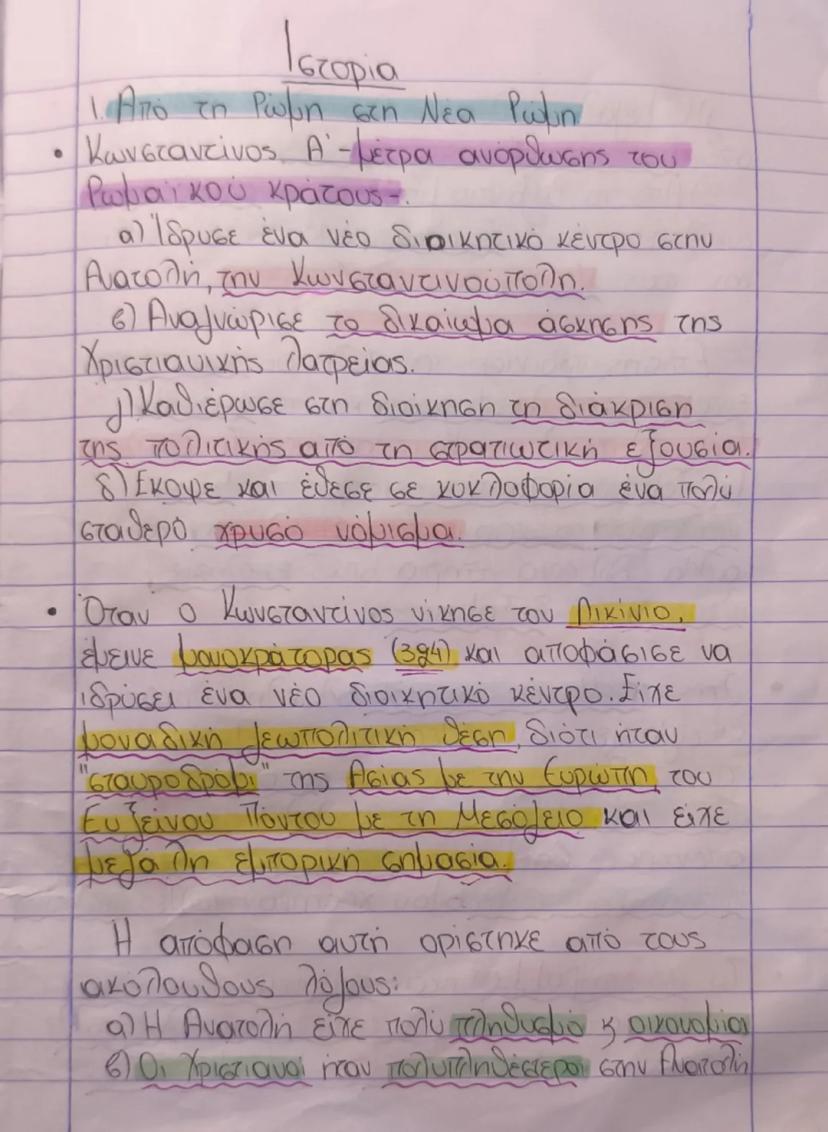 Ιστορία
1. Από τη Ρώμη στη Νέα Ρώμη
• Κωνσταντίνος Α' - μέτρα ανόρθωσης του
Ρωμαϊκού κράτους -.
α) Ίδρυσε ένα νέο διοικητικό κέντρο στην
Ανατολή, την Κωνσταντινούπολη.
β) Αναγνώρισε το δικαίωμα άσκησης της
Χριστιανικής λατρείας.
γ) Καθιέρωσε στη διοίκηση τη διάκριση
της πολιτικής από τη στρατιωτική εξουσία.
δ) Έκοψε και έθεσε σε κυκλοφορία ένα πολύ
σταθερό χρυσό νόμισμα.
• Όταν ο Κωνσταντίνος νίκησε τον Λικίνιο,
έμεινε μονοκράτορας (324) και αποφάσισε να
ιδρύσει ένα νέο διοικητικό κέντρο. Είχε
μοναδική γεωπολιτική θέση, διότι ήταν
"σταυροδρόμι" της Ασίας με την Ευρώπη, του
Ευξείνου Πόντου με τη Μεσόγειο και είχε
μεγάλη εμπορική σημασία.
Η απόφαση αυτή ορίστηκε από τους
ακόλουθους λόγους:
α) Η Ανατολή είχε πολύ πληθυσμό ϗ οικονομία
β) Οι Χριστιανοί ήταν πολυπληθέστεροι στην Ανατολή